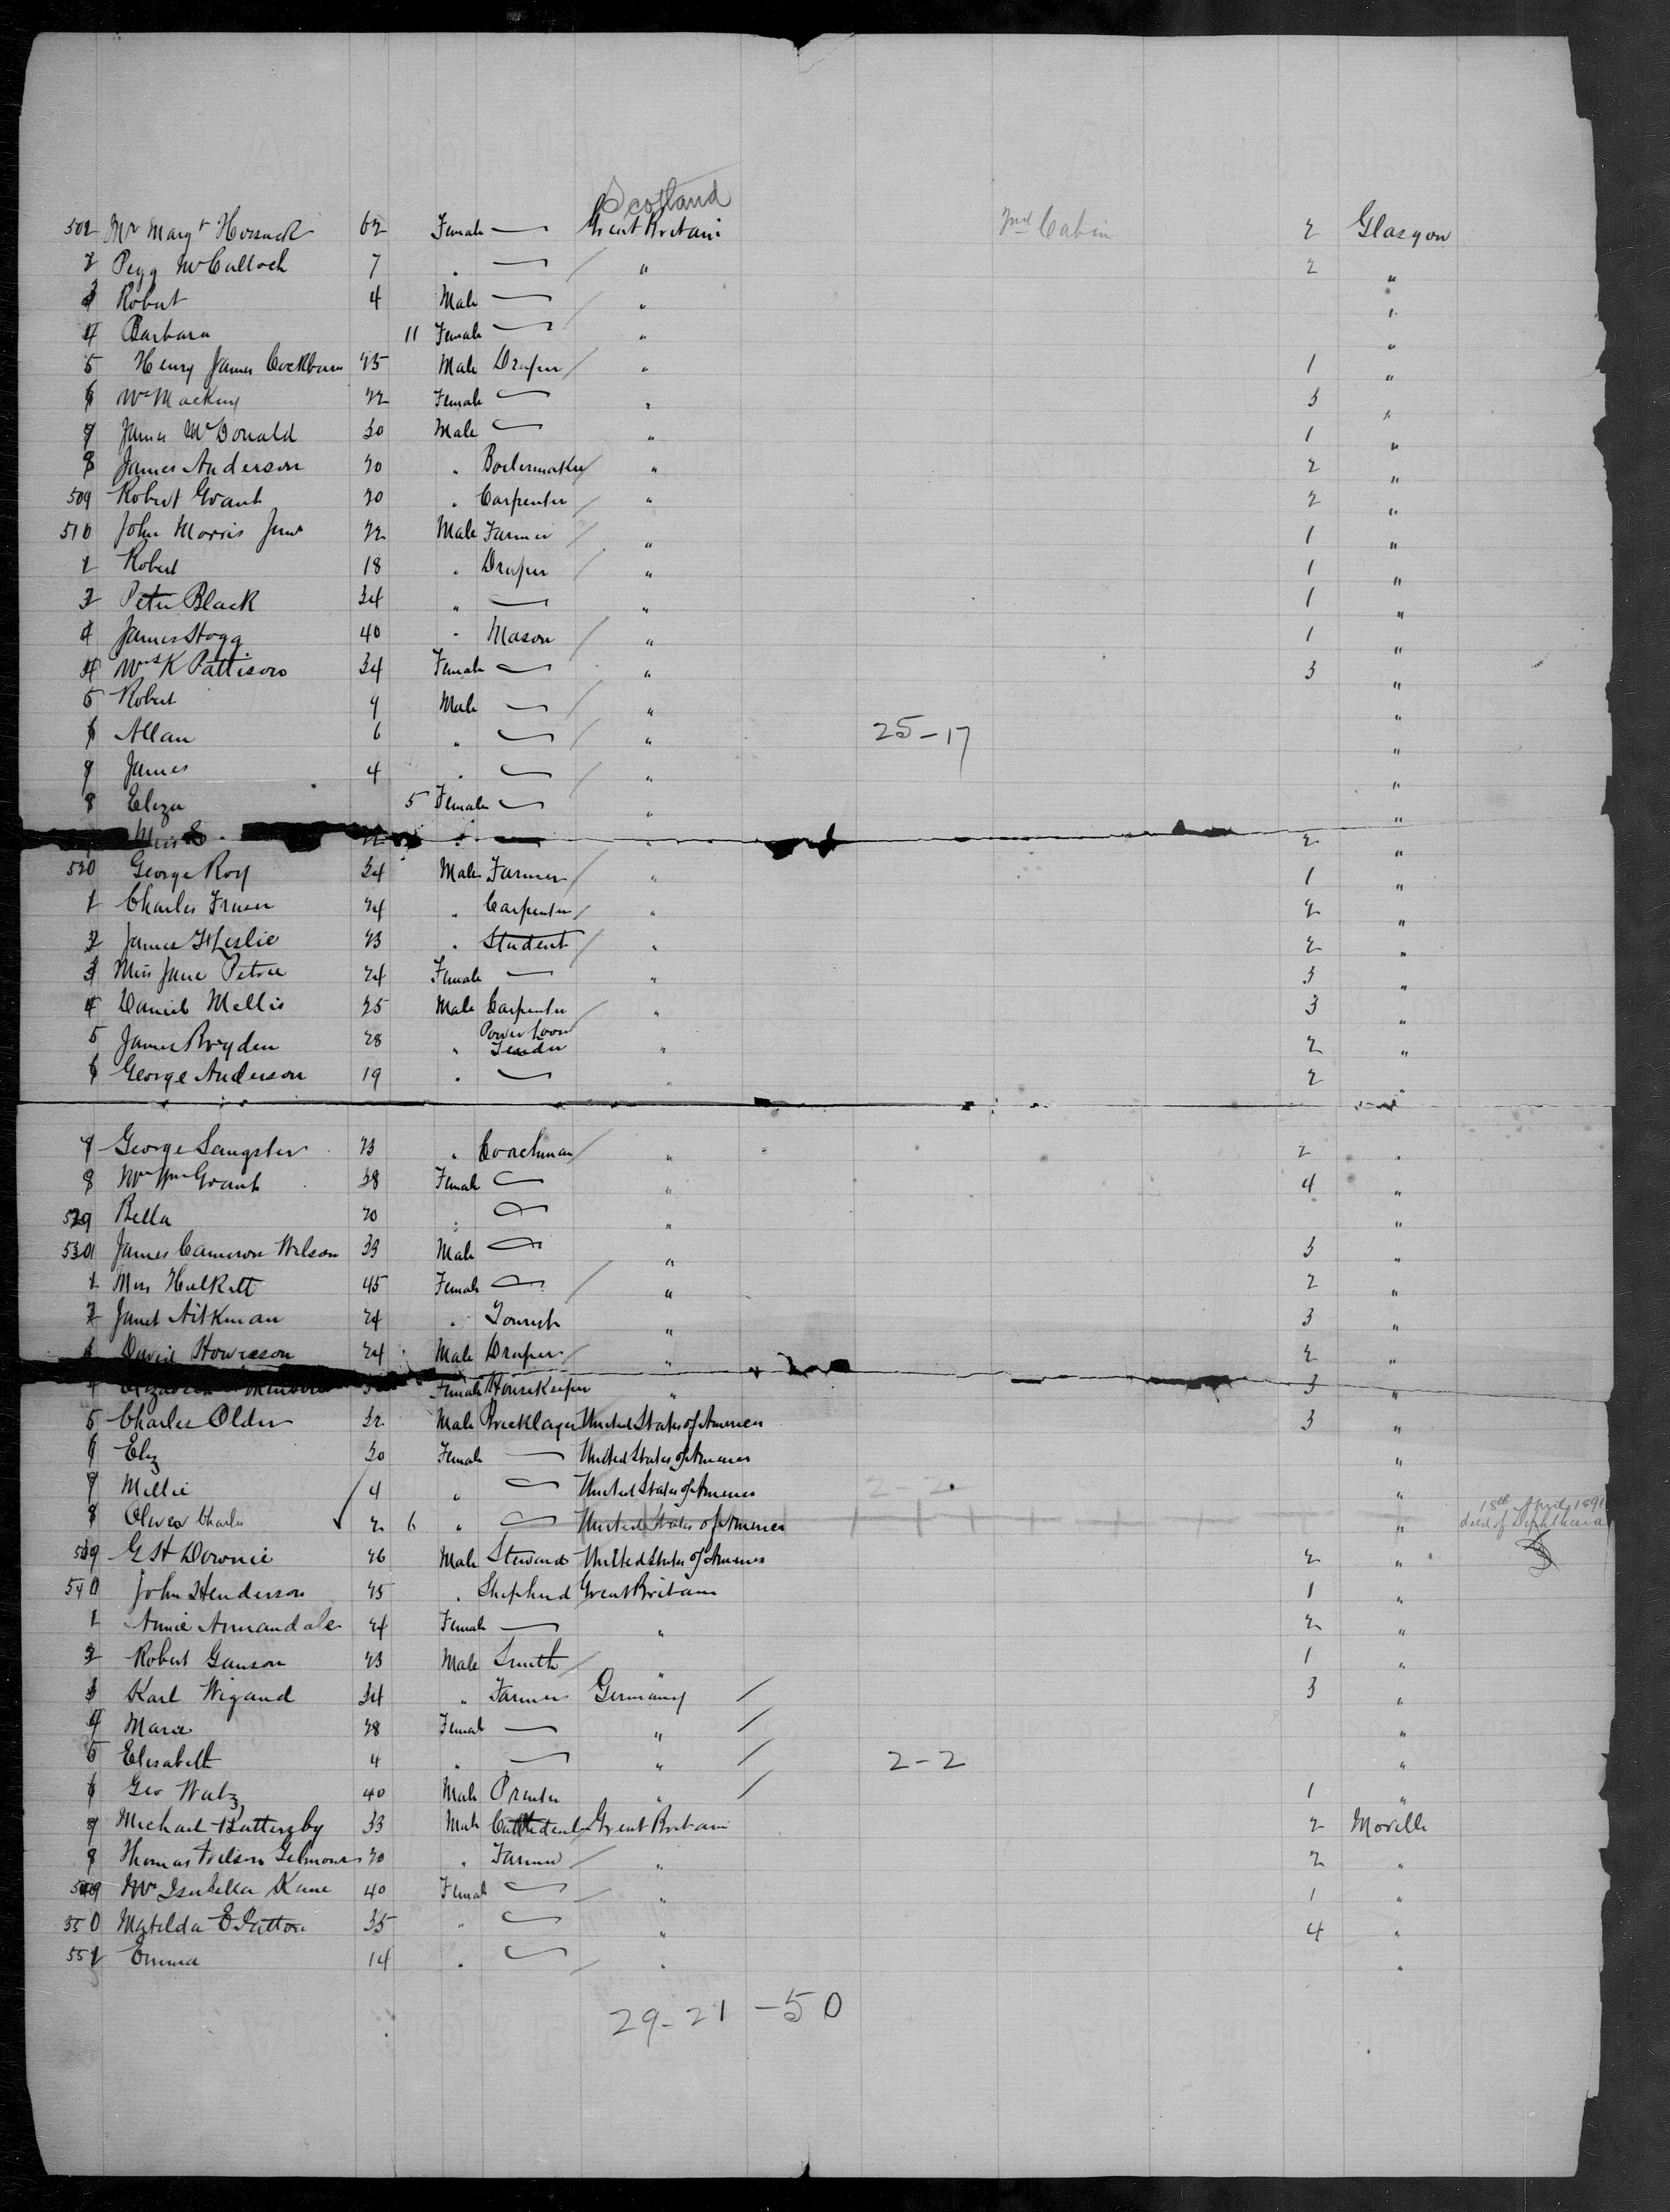 Scotland
502 Mrs Margt Hossack 62 Female — Great Britain 2nd Cabin 2 Glasgow
2 Pegg McCulloch 7 " — / " 2 "
3 Robert 4 Male — / " "
4 Barbara 11 Female — / " "
5 Henry James Cockburn 25 Male Draper / " 1 "
6 Mrs Mackay 22 Female — " 3 "
7 James McDonald 30 Male — " 1 "
8 James Anderson 20 " Boilermaker / " 2 "
509 Robert Grant 20 " Carpenter / " 2 "
510 John Morris Junr 22 Male Farmer / " 1 "
1 Robert 18 " Draper / " 1 "
2 Peter Black 34 " — " 1 "
James Hogg 40 " Mason / " 1 "
4 Mrs K Pattison 34 Female — " 3 "
5 Robert 9 Male — / " "
6 Allan 6 " — / " 25-17 "
7 James 4 " — / " "
8 Eliza 5 Female — " "
Miss 22 " — " 2 "
520 George Roy 34 Male Farmer / " 1 "
1 Charles Fraser 24 " Carpenter / " 2 "
2 James H Leslie 23 " Student / " 2 "
3 Miss Jane Petrie 24 Female — " 3 "
4 Daniel Mellis 25 Male Carpenter / " 3 "
5 James Bryden 28 " Power Loom Tender " 2 "
6 George Anderson 19 " — " 2 "
7 George Sangster 23 " Coachman / " 2 "
8 Mrs Wm Grant 38 Female — " 4 "
529 Bella 20 " — " "
530 James Cameron Wilson 33 Male — " 3 "
1 Miss Halkett 45 Female — / " 2 "
2 Janet Aitkman 24 " Tourist " 3 "
David Howieson 24 Male Draper / " 2 "
4 Elizabeth Female Housekeeper " 3 "
5 Charles Older 32 Male Bricklayer United States of America 3 "
6 Eliz 30 Female — United States of America "
7 Millie 4 " — United States of America 2-2 "
8 Charles 2 6 " — United States of America " 18th April 1891 died of diphtheria
539 G H Downie 26 Male Steward United States of America 2 "
540 John Henderson 25 " Shepherd Great Britain 1 "
1 Annie Annandale 24 Female — " 2 "
2 Robert Ganson 23 Male Smith / " 1 "
3 Karl Wigand 34 " Farmer Germany / 3 "
4 Marie 28 Female — " / "
5 Elisabeth 4 " — " / 2-2 "
6 Geo Walz 40 Male Printer " / 1 "
7 Michael Battersby 33 Male Cattledealer Great Britain 2 Moville
8 Thomas Wilson Gilmour 20 " Farmer / " 2 "
549 Mrs Isabella Kane 40 Female — / " 1 "
550 Matilda E Patton 35 " — " 4 "
551 Emma 14 " — / " "
29-21-50